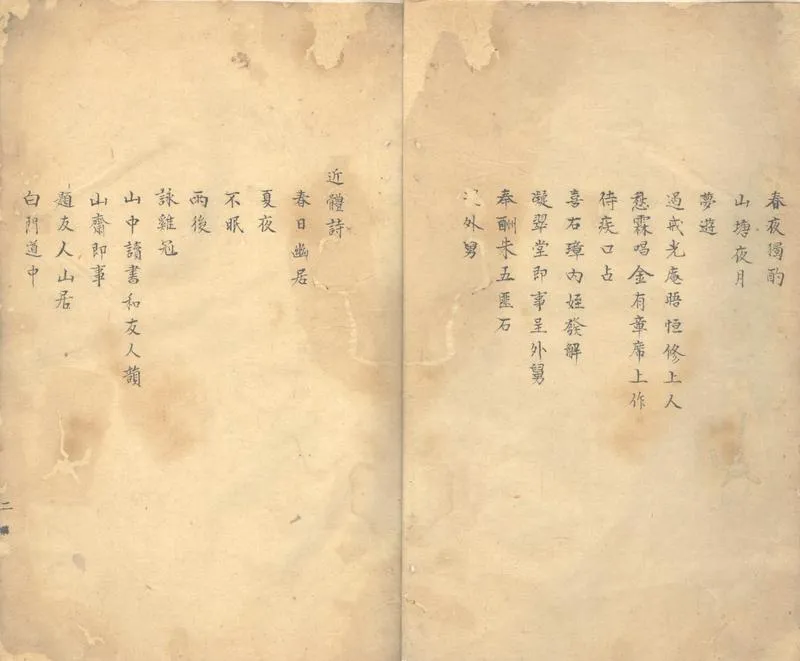 春夜獨酌
山塘夜月
夢遊
過戒光庵晤恒修上人
愁霖唱金有章席上作
待疾口占
喜右璋內姪發解
凝翠堂即事呈外舅
奉酬朱五匪石
外舅
近體詩
春日幽居
夏夜
不眠
雨後
詠雞冠
山中讀書和友人韻
山齋即事
題友人山居
白門道中
二